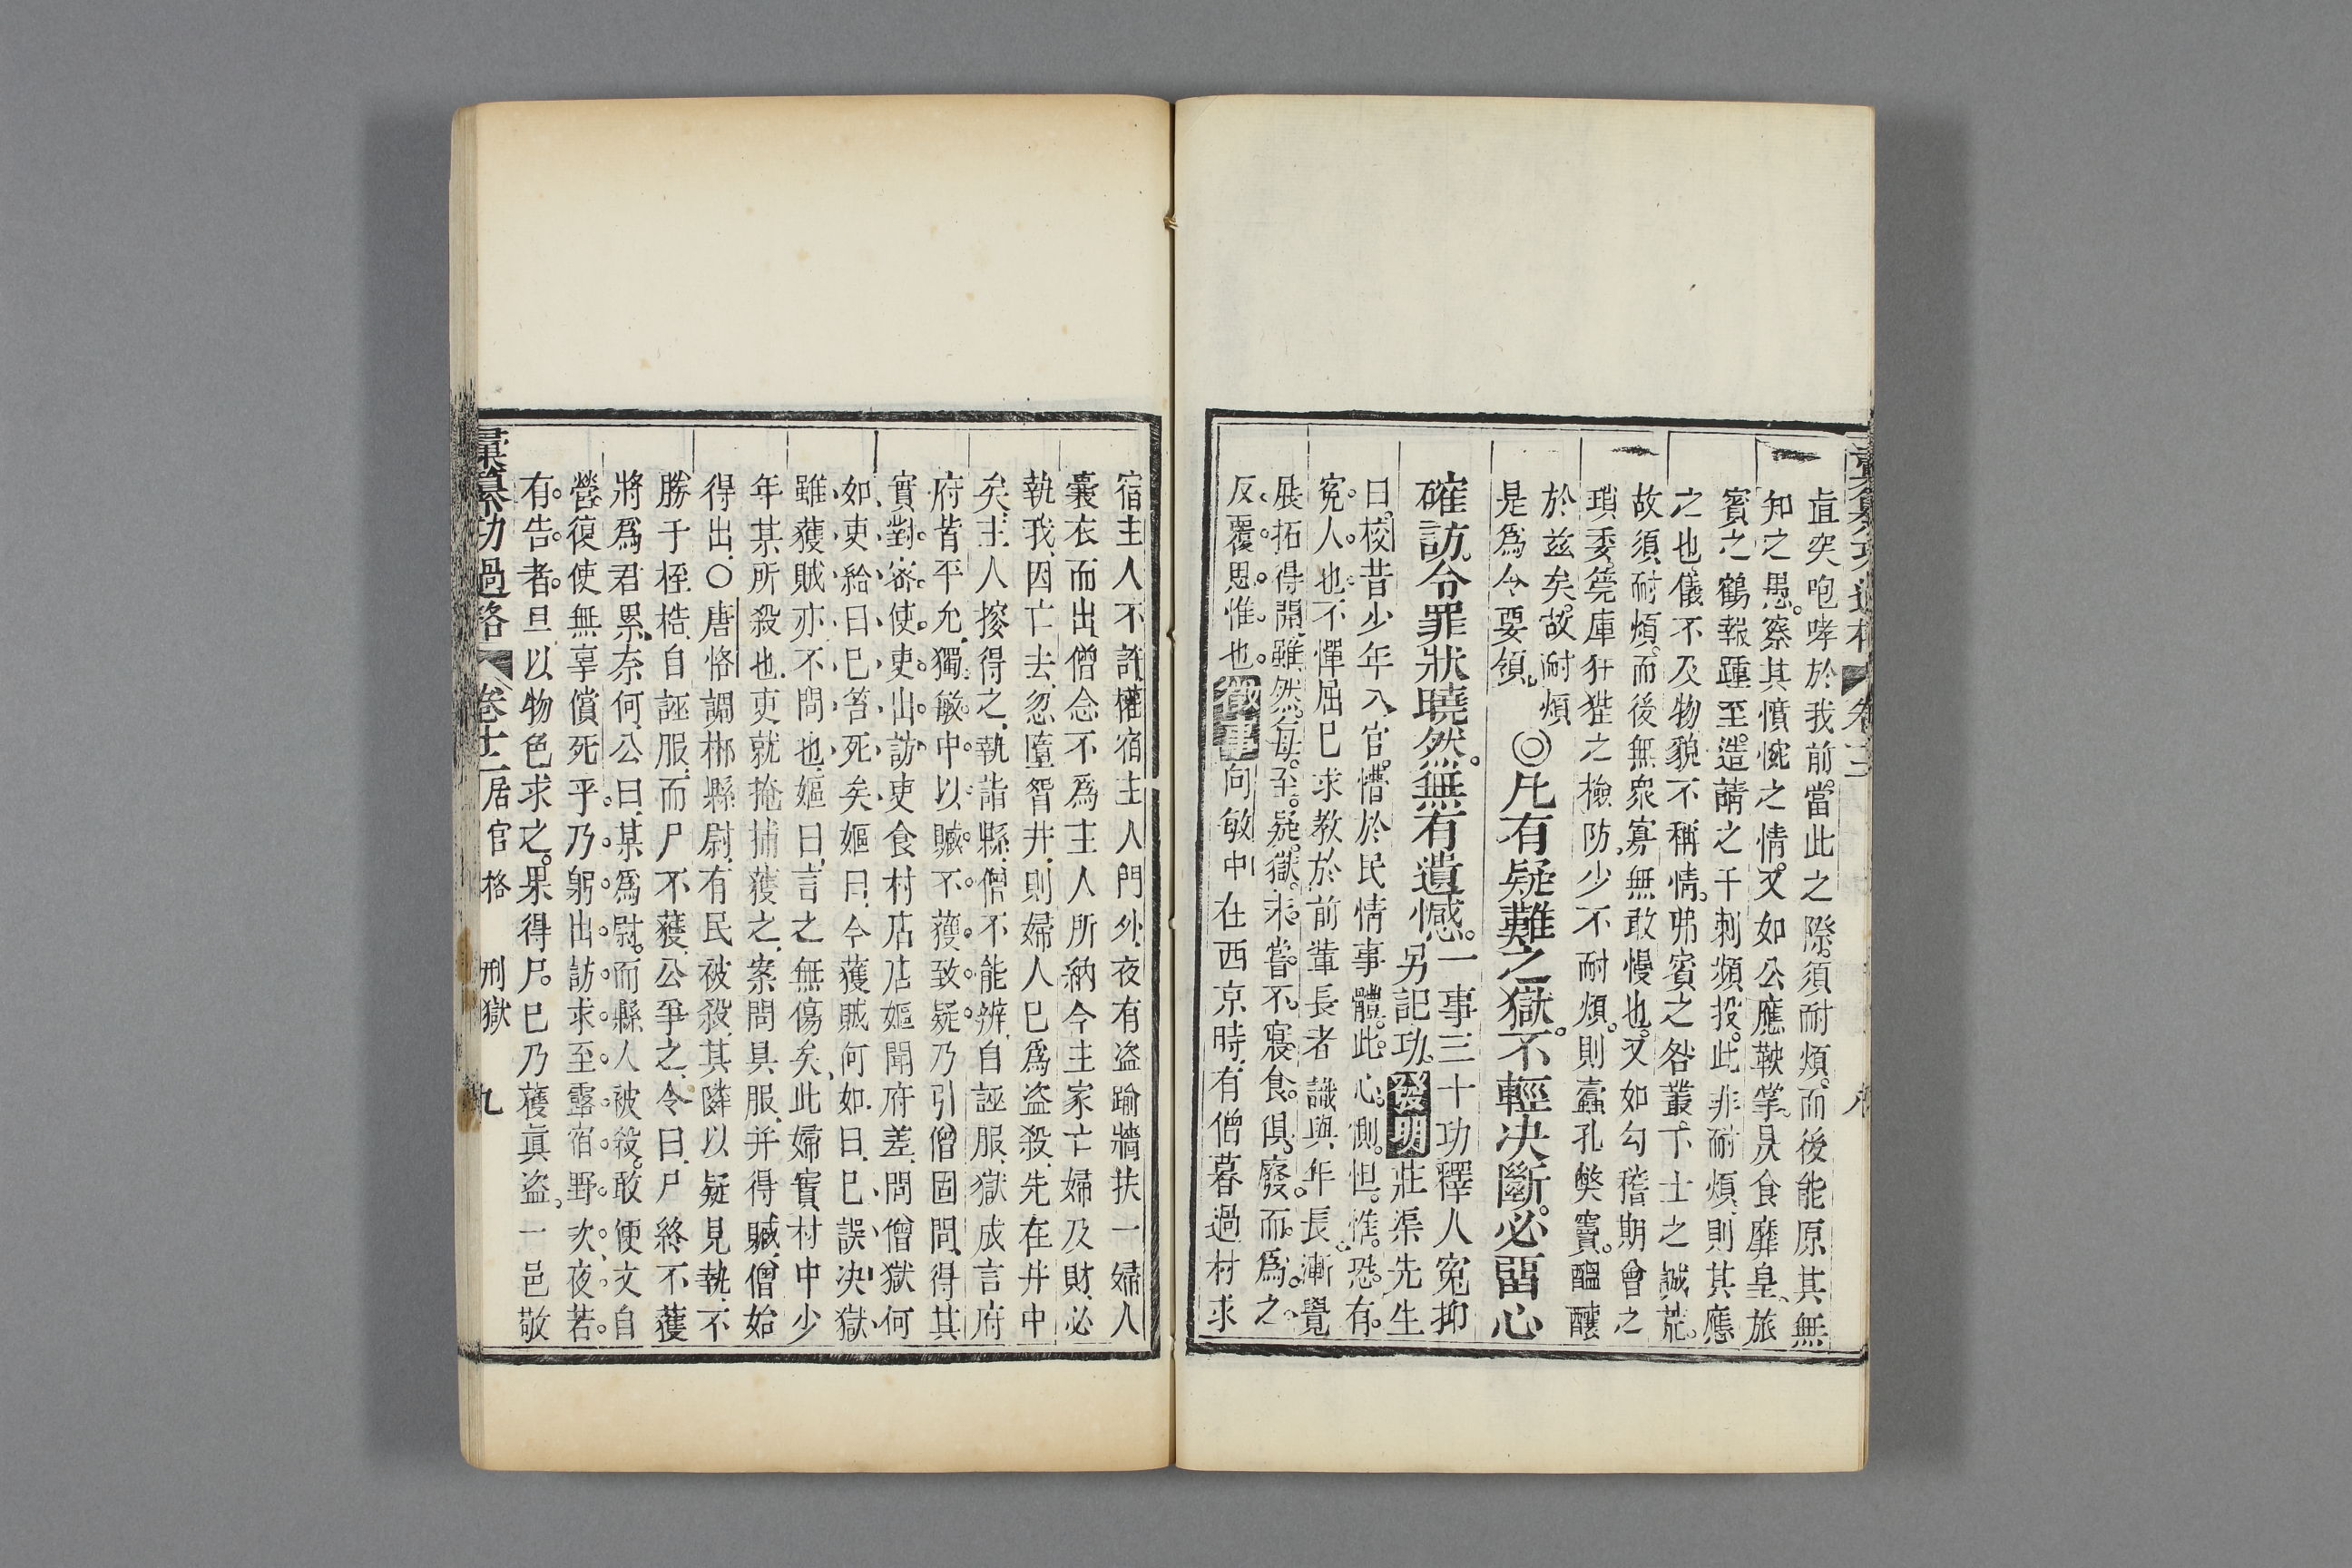 直突咆哮於我前當此之際須耐煩而後能原其無
知之愚察其憤惋之情又如公應鞅掌昃食靡皇旅
賓之鶴報踵至造請之干刺頻投此非耐煩則其應
之也儀不及物貌不稱情弗賓之咎叢下士之誠荒
故須耐煩而後無眾寡無敢慢也又如勾稽期會之
瑣委筦庫犴狴之檢防少不耐煩則蠹孔弊竇醞釀
於茲矣故耐煩
是爲今要領
◎凡有疑難之獄不輕决斷必留心
確訪令罪狀曉然無有遺憾一事三十功釋人冤抑
另記功發明莊渠先生
曰校昔少年入官懵於民情事體此心惻怛惟恐有
冤人也不憚屈已求教於前輩長者識與年長漸覺
展拓得開雖然每至疑獄未嘗不寢食俱廢而爲之
反覆思惟也徵事向敏中在西京時有僧暮過村求
宿主人不許權宿主人門外夜有盗踰牆扶一婦人
囊衣而出僧念不爲主人所納今主家亡婦及財必
執我因亡去忽墮眢井則婦人已爲盗殺先在井中
矣主人搜得之執詣縣僧不能辨自誣服獄成言府
府皆平允獨敏中以贓不獲致疑乃引僧固問得其
實對密使吏出訪吏食村店店嫗聞府差問僧獄何
如吏紿曰已笞死矣嫗曰今獲賊何如曰已誤决獄
雖獲賊亦不問也嫗曰言之無傷矣此婦實村中少
年某所殺也吏就掩捕獲之案問具服并得贓僧始
得出〇唐恪調郴縣尉有民被殺其隣以疑見執不
勝于桎梏自誣服而尸不獲公爭之令曰尸終不獲
將爲君累奈何公曰某爲尉而縣人被殺敢便文自
營復使無辜償死乎乃躬出訪求至露宿野次夜若
有告者旦以物色求之果得尸已乃獲眞盗一邑敬
彙纂功過格 卷十二居官格 刑獄 九